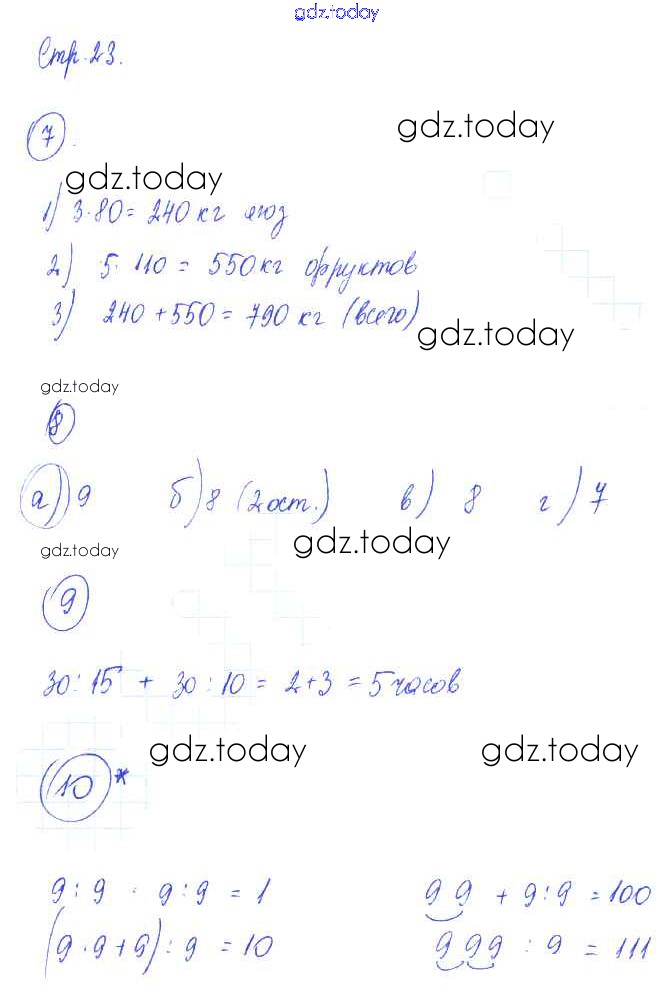 gdz.today
Стр. 23.
7.
gdz.today
gdz.today
1) 3·80 = 240 кг ягод
2) 5·110 = 550 кг фруктов
3) 240 + 550 = 790 кг (всего)
gdz.today
gdz.today
8
а) 9 б) 8 (2 ост.) в) 8 г) 7
gdz.today
gdz.today
9
30 : 15 + 30 : 10 = 2 + 3 = 5 часов
gdz.today
gdz.today
10*
9 : 9 · 9 : 9 = 1 99 + 9 : 9 = 100
(9 · 9 + 9) : 9 = 10 999 : 9 = 111